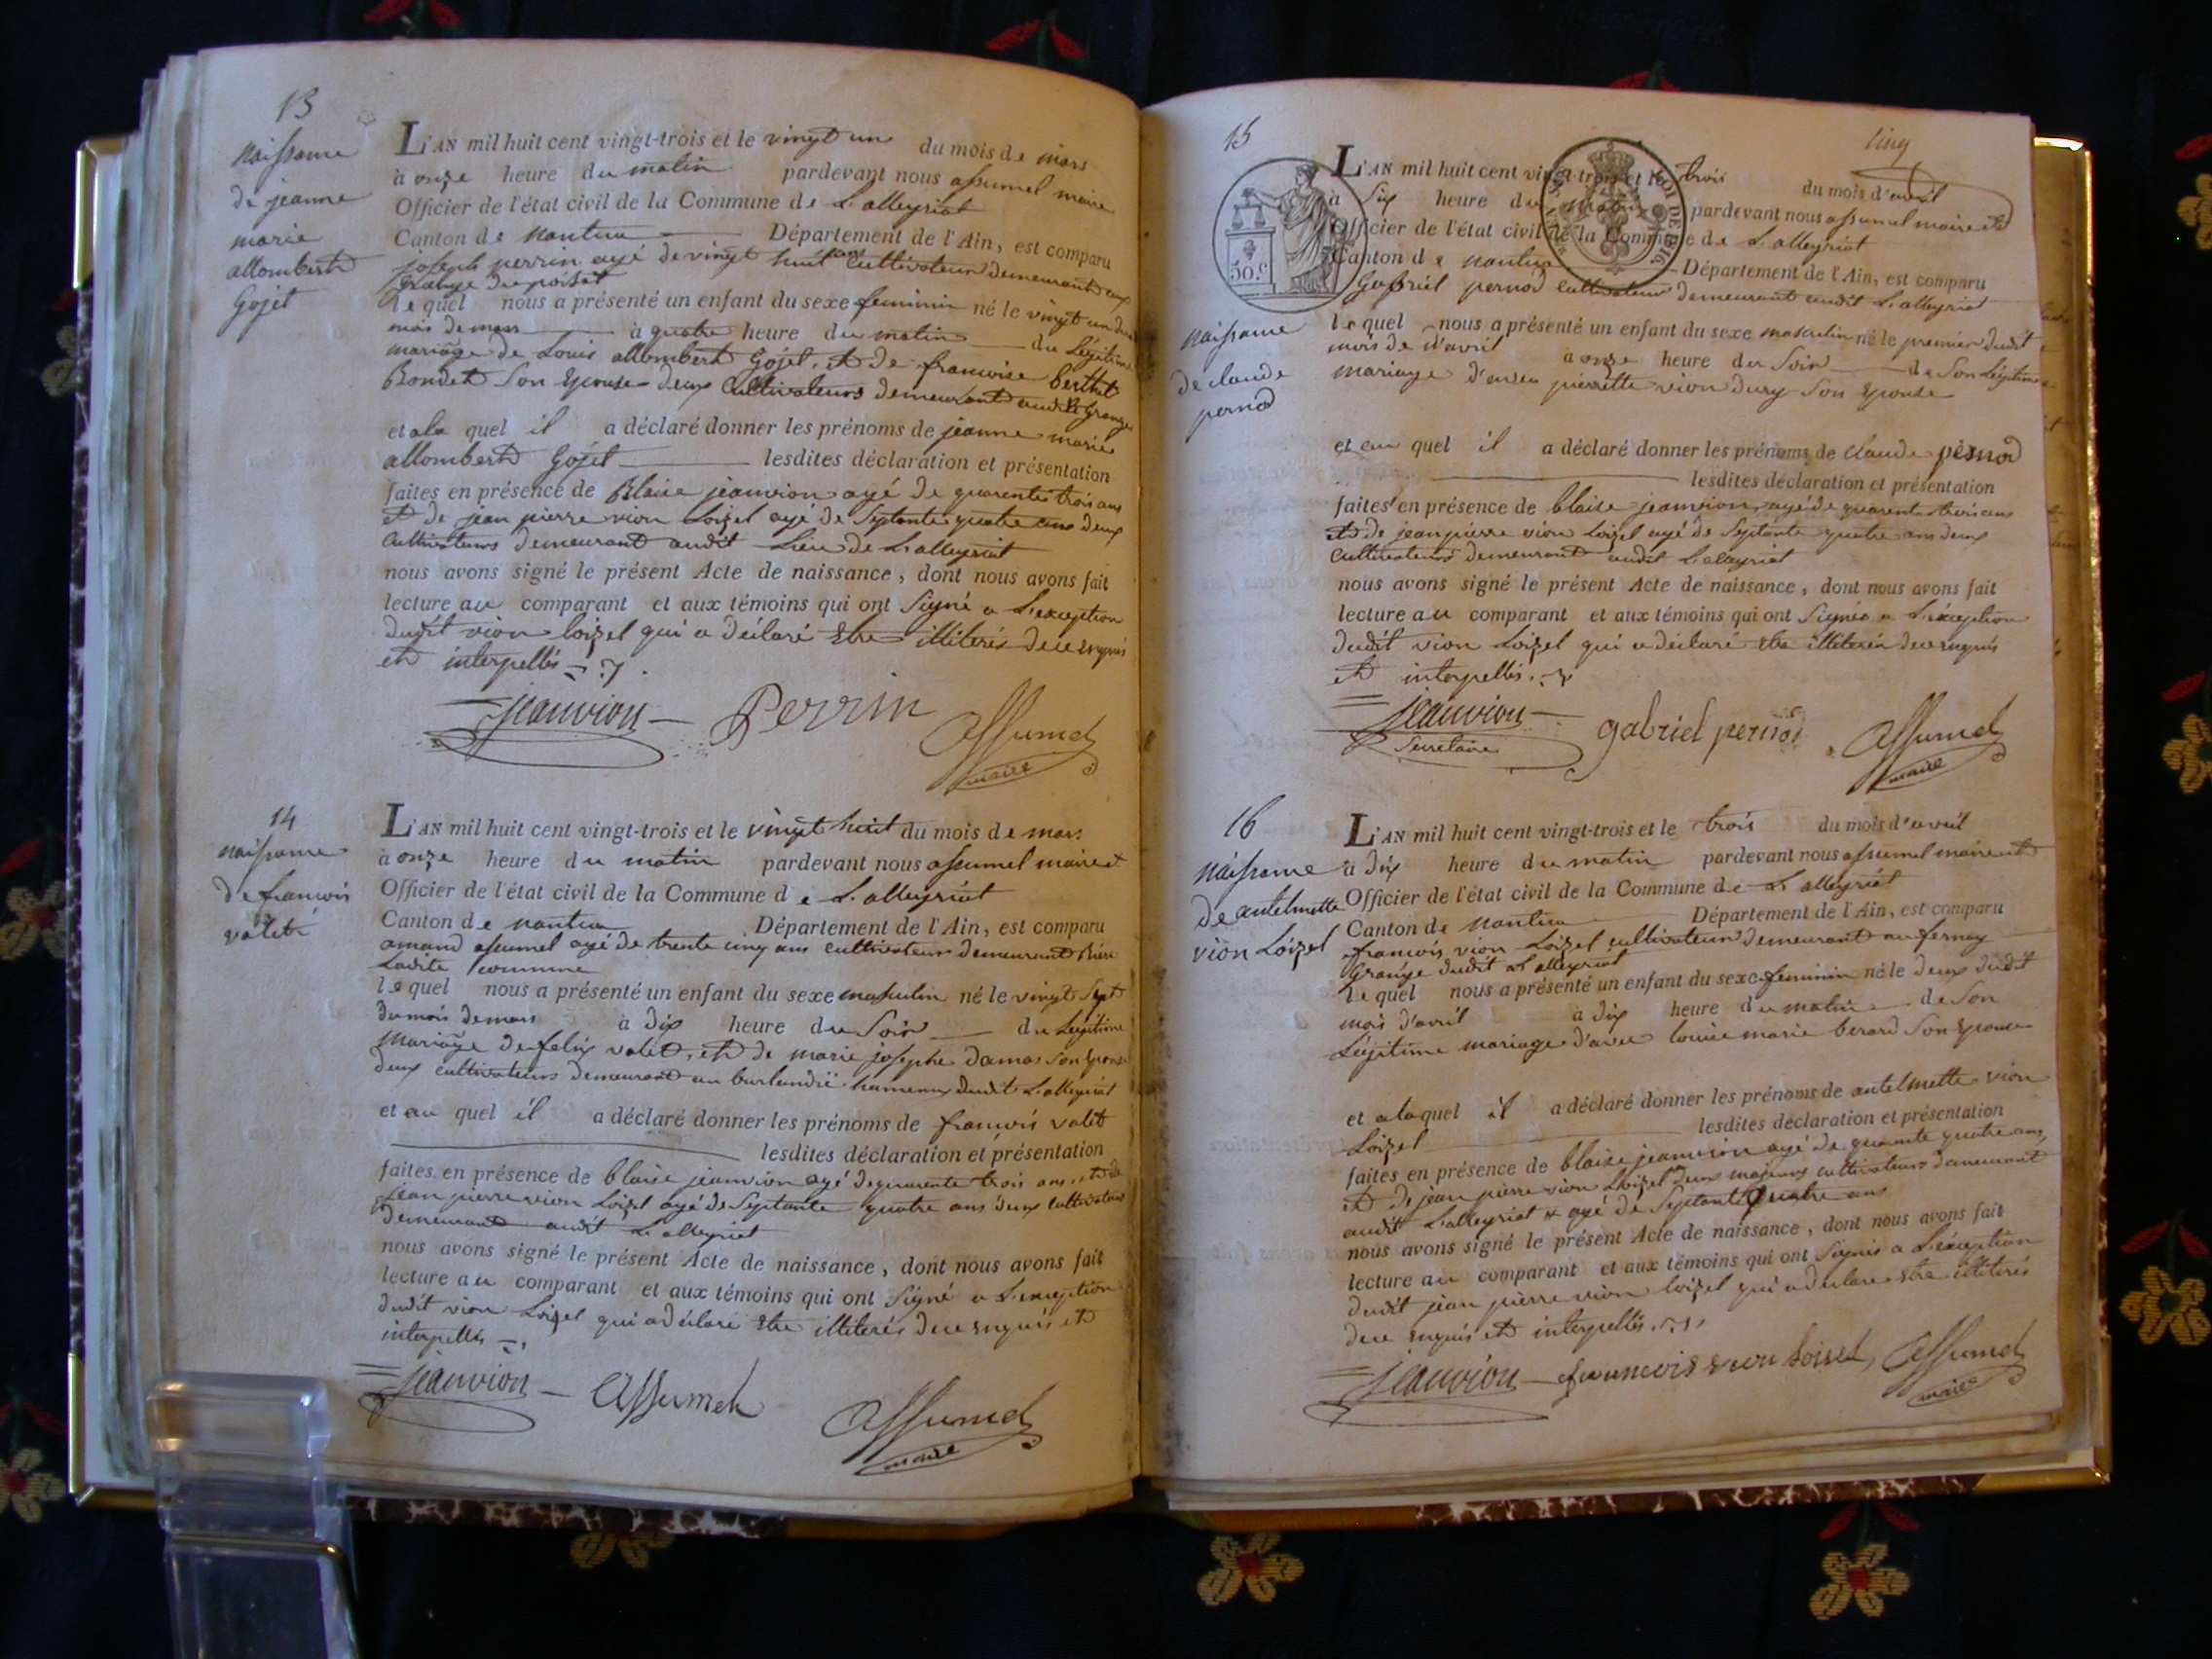 13
naissance
de jeanne
marie
allombert
Gojet
L'AN mil huit cent vingt-trois et le vingt un du mois de mars
à onze heure du matin pardevant nous assumel maire
Officier de l'état civil de la Commune de L'alleyriat
Canton de nantua Département de l'Ain, est comparu
joseph perrin agé de vingt huit ans cultivateur demeurant aux
grange du poisat
lequel nous a présenté un enfant du sexe feminin né le vingt un du
mois de mars à quatre heure du matin du Légitime
mariage de Louis allombert Gojet, et de francoise berthet
Bondet son epouse deux cultivateurs demeurant audit Grange
et a la quel il a déclaré donner les prénoms de jeanne marie
allombert Gojet lesdites déclaration et présentation
faites en présence de Blaise jeanvion agé de quarente trois ans
et de jean pierre vion Loizel agé de Septante quatre ans deux
cultivateurs demeurant audit Lieu de L'alleyriat
nous avons signé le présent Acte de naissance, dont nous avons fait
lecture au comparant et aux témoins qui ont Signé a L'exception
dudit vion loizel qui a déclaré Etre illiterés de ce enquis
et interpellés
jeanvion Perrin Assumel
maire
14
naissance
de francois
valet
L'AN mil huit cent vingt-trois et le vingt huit du mois de mars
à onze heure du matin pardevant nous assumel maire et
Officier de l'état civil de la Commune de L'alleyriat
Canton de nantua Département de l'Ain, est comparu
amand assumel agé de trente cinq ans cultivateur demeurant
Ladite commune
lequel nous a présenté un enfant du sexe masculin né le vingt Sept
du mois de mars à dix heure du Soir du Legitime
mariage de felix valet, et de marie josephe damas son Epouse
deux cultivateurs demeurant au burlandié hameaux dudit L'alleyriat
et au quel il a déclaré donner les prénoms de francois valet
lesdites déclaration et présentation
faites en présence de blaise jeanvion agé de quarente trois ans et de
jean pierre vion Loizel agé de Septante quatre ans deux cultivateurs
demeurant audit L'alleyriat
nous avons signé le présent Acte de naissance, dont nous avons fait
lecture au comparant et aux témoins qui ont Signé a L'exception
dudit vion Loizel qui a déclaré Etre illiterés de ce enquis et
interpellés
jeanvion Assumel Assumel
maire
15
cinq
50.c
naissance
de claude
pernod
L'AN mil huit cent vingt-trois et le trois du mois d'avril
à Six heure du matin pardevant nous assumel maire et
Officier de l'état civil de la Commune de L'alleyriat
Canton de nantua Département de l'Ain, est comparu
Gabriel pernod cultivateur demeurant audit L'alleyriat
lequel nous a présenté un enfant du sexe masculin né le premier dudit
mois de d'avril à onze heure du Soir de Son Légitime
mariage d'avec pierrette vion dury Son Epouse
et au quel il a déclaré donner les prénoms de claude pernod
lesdites déclaration et présentation
faites en présence de blaise jeanvion agé de quarente trois ans
et de jean pierre vion Loizel agé de Septante quatre ans deux
cultivateurs demeurant audit L'alleyriat
nous avons signé le présent Acte de naissance, dont nous avons fait
lecture au comparant et aux témoins qui ont Signés a L'exception
dudit vion Loizel qui a déclaré etre illiterés de ce enquis
et interpellés.
jeanvion gabriel pernod Assumel
Secretaire maire
16
naissance
de antelmette
vion Loizel
L'AN mil huit cent vingt-trois et le trois du mois d'avril
à dix heure du matin pardevant nous assumel maire et
Officier de l'état civil de la Commune de L'alleyriat
Canton de nantua Département de l'Ain, est comparu
francois vion Loizel cultivateur demeurant au fernay
Grange dudit L'alleyriat
lequel nous a présenté un enfant du sexe feminin né le deux dudit
mois d'avril à dix heure du matin de Son
Légitime mariage d'avec louise marie berard Son Epouse
et a laquel il a déclaré donner les prénoms de antelmette vion
Loizel lesdites déclaration et présentation
faites en présence de blaise jeanvion agé de quarante quatre ans,
et de jean pierre vion Loizel deux majeurs cultivateurs demeurant
audit L'alleyriat agé de Septante quatre ans
nous avons signé le présent Acte de naissance, dont nous avons fait
lecture au comparant et aux témoins qui ont Signés a L'exception
dudit jean pierre vion loizel qui a déclaré Etre illiterés
de ce enquis et interpellés.
jeanvion francois vion loisel, Assumel
maire